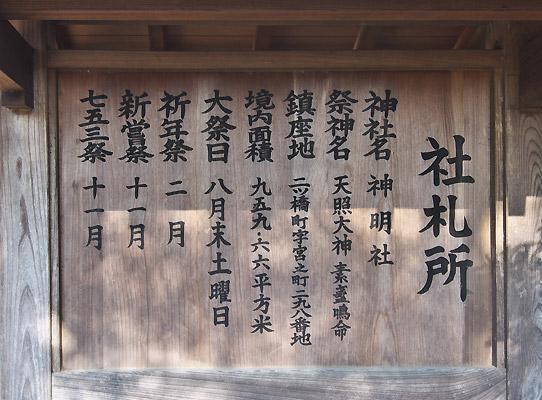 社札所
神社名 神明社
祭神名 天照大神 素盞鳴命
鎮座地 二ツ橋町字宮之町二九八番地
境内面積 九五九.六六平方米
大祭日 八月末土曜日
祈年祭 二月
新嘗祭 十一月
七五三祭 十一月